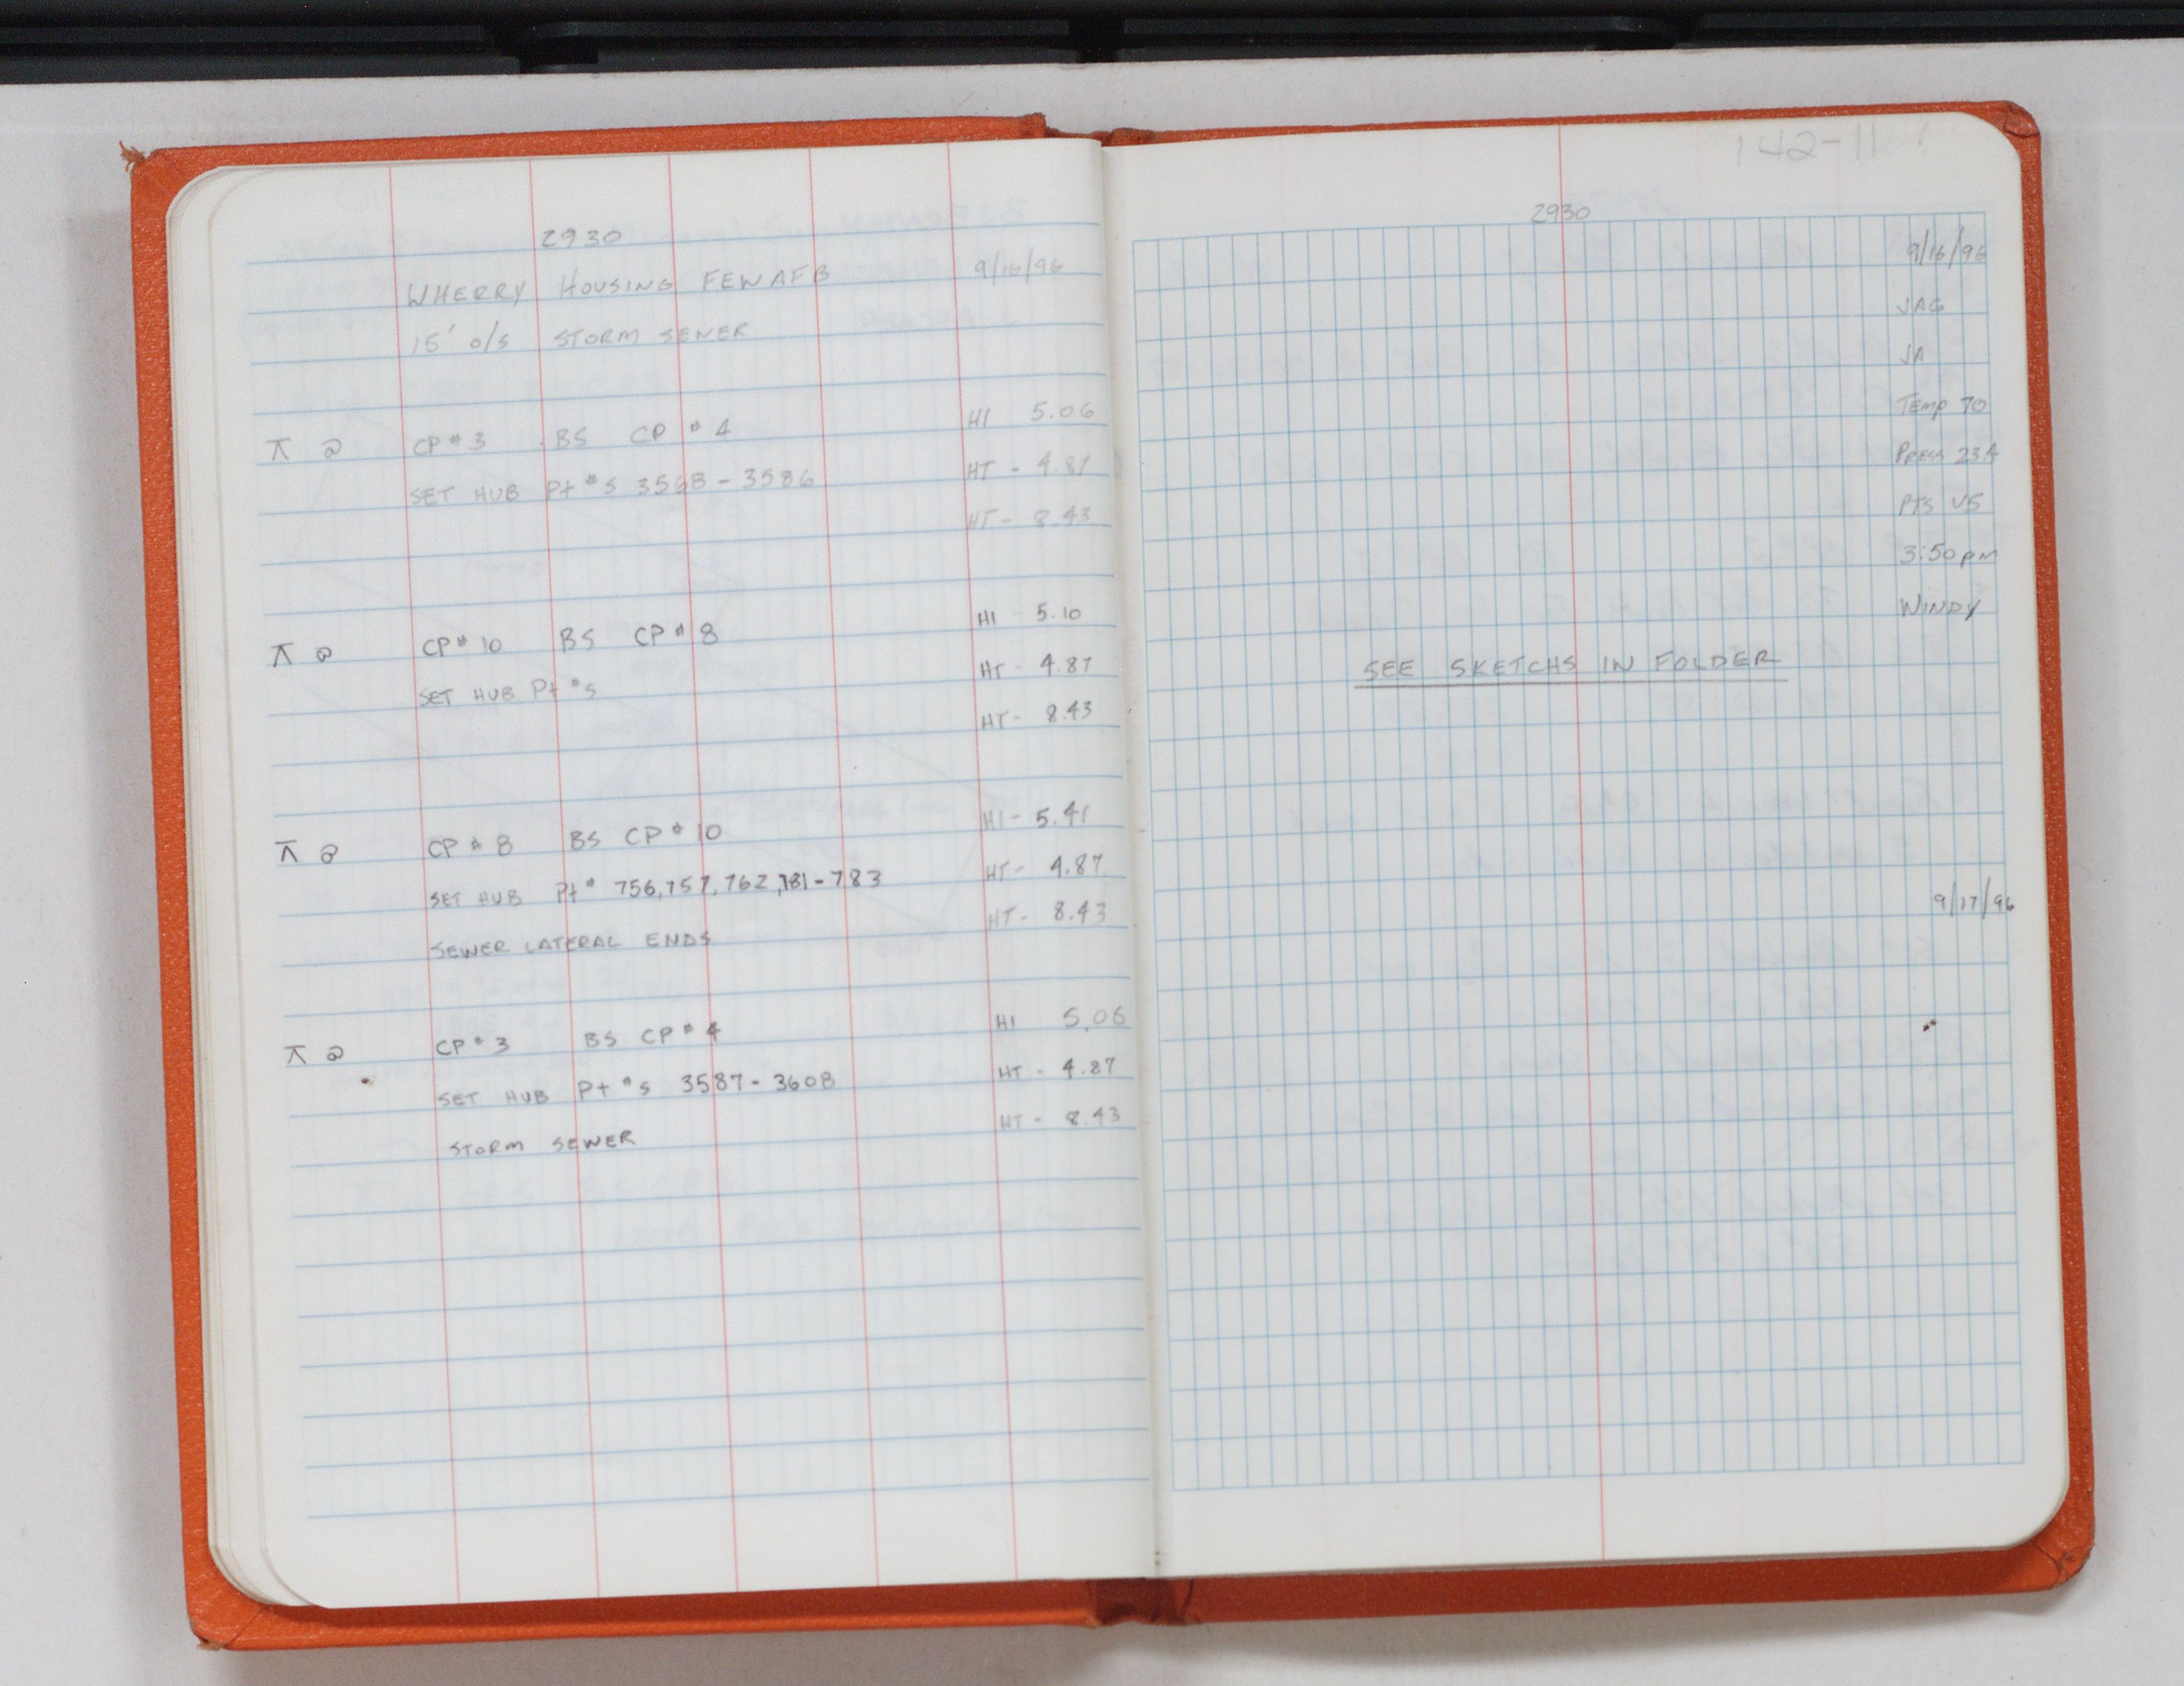 2930
WHERRY HOUSING FEWAFB 9/16/96
15' o/s STORM SEWER
⊼ @ CP#3 BS CP #4 HI 5.06
SET HUB Pt #s 3568-3586 HT - 4.87
HT - 8.43
⊼ @ CP#10 BS CP#8 HI 5.10
SET HUB Pt #s HT - 4.87
HT - 8.43
⊼ @ CP#8 BS CP#10 HI - 5.41
SET HUB Pt# 756,757,762,781-783 HT - 4.87
SEWER LATERAL ENDS HT - 8.43
⊼ @ CP#3 BS CP#4 HI 5.06
SET HUB Pt #s 3587-3608 HT - 4.87
STORM SEWER HT - 8.43
2930
9/16/96
JAG
JA
Temp 70
Press 23.4
PTS V5
3:50pm
WINDY
SEE SKETCHS IN FOLDER
9/17/96